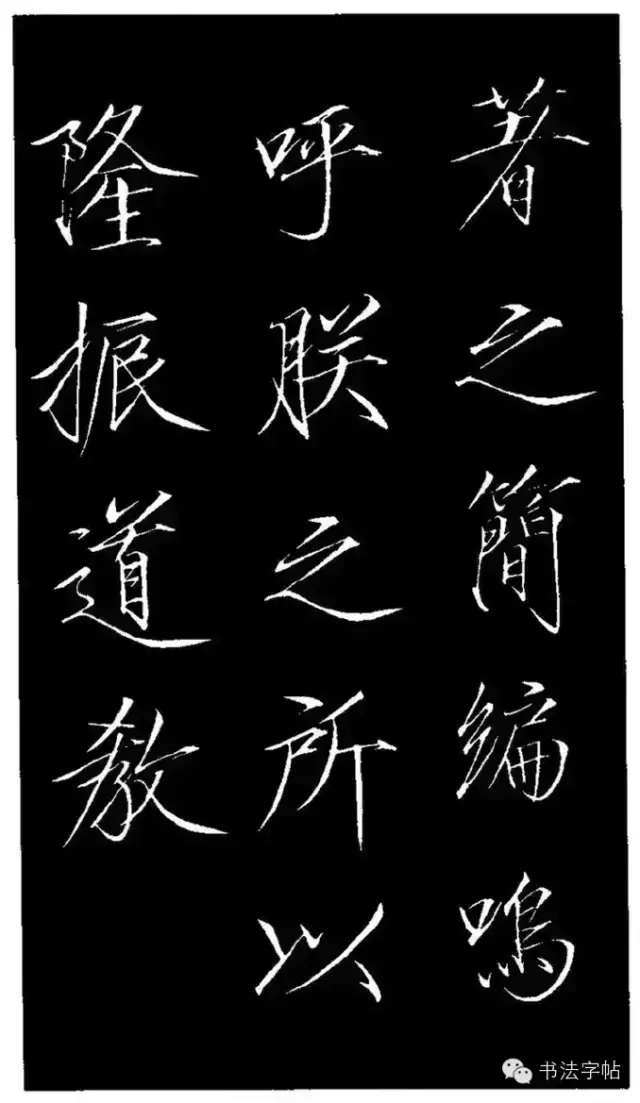 著之簡編嗚
呼朕之所以
隆振道教
书法字帖